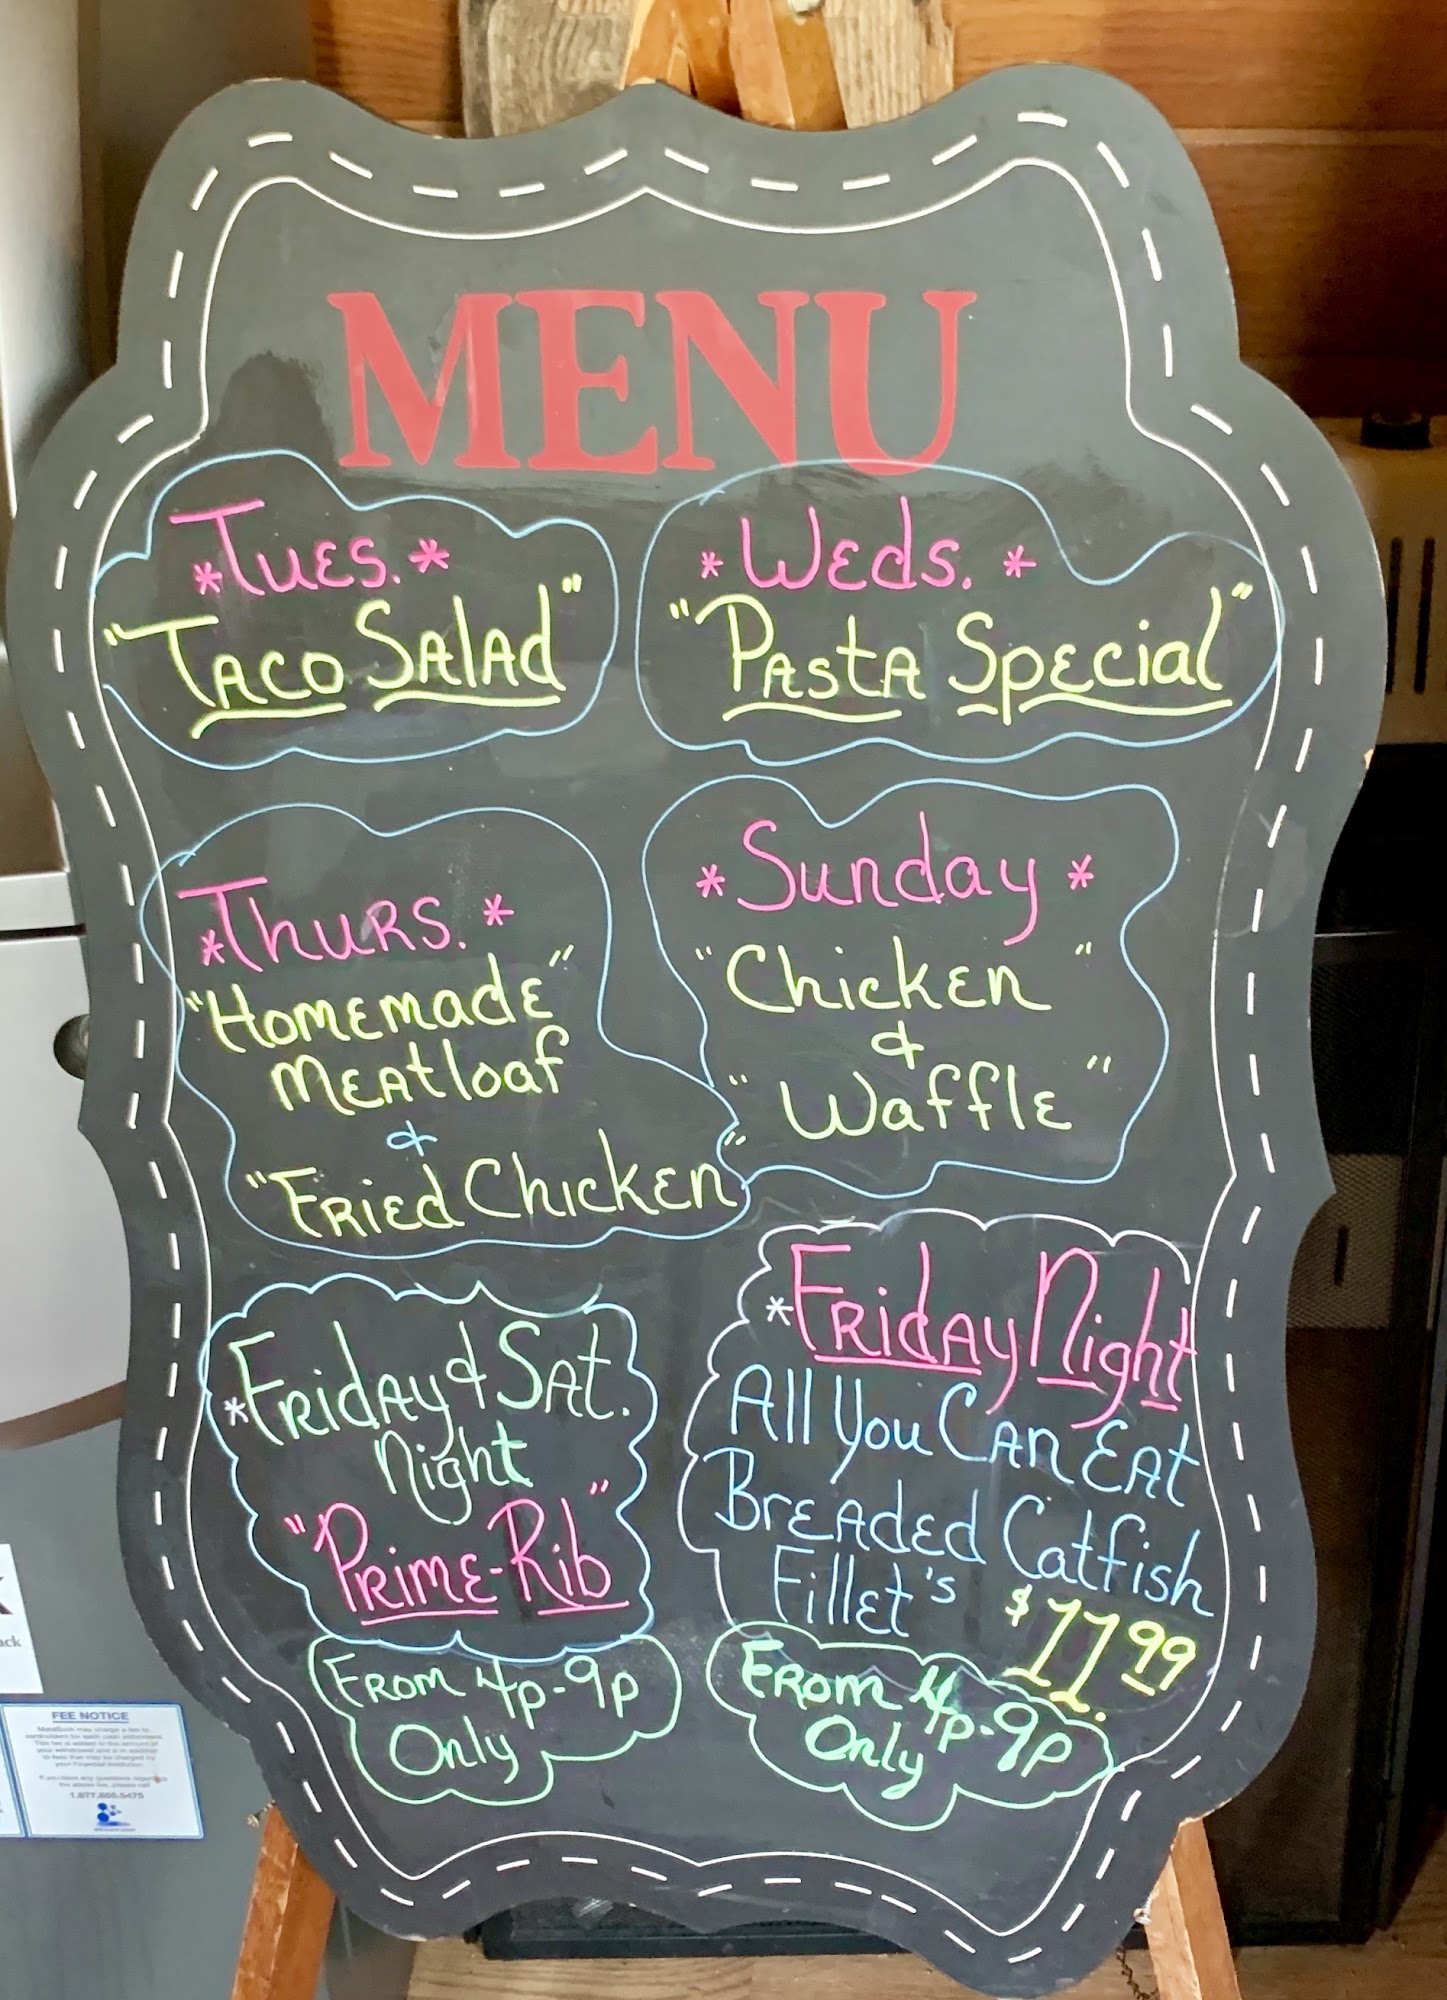 MENU
*Tues.*
"Taco Salad"
*Weds.*
"Pasta Special"
*Thurs.*
"Homemade"
Meatloaf
&
"Fried Chicken"
*Sunday*
"Chicken"
&
"Waffle"
*Friday & Sat.
Night
"Prime-Rib"
From 4p-9p
Only
*Friday Night
All You Can Eat
Breaded Catfish
Fillet's $17.99
From 4p-9p
Only
ack
FEE NOTICE